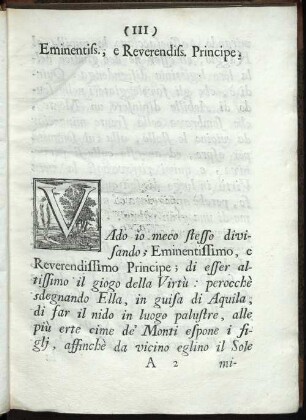 (III)
Eminentiſſ., e Reverendiſſ. Principe,
VAdo io meco ſteſſo divi-
ſando; Eminentiſſimo, e
Reverendiſſimo Principe; di eſſer al-
tiſſimo il giogo della Virtù: perocchè
sdegnando Ella, in guiſa di Aquila,
di far il nido in luogo paluſtre, alle
più erte cime de' Monti eſpone i fi-
glj, affinchè da vicino eglino il Sole
A 2 mi-